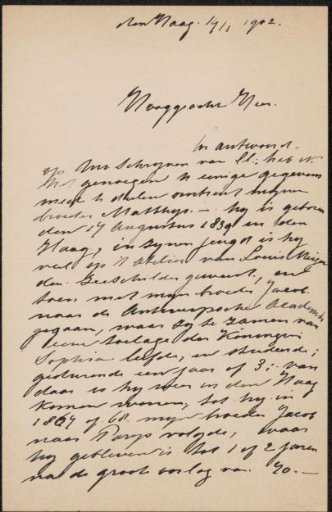 den Haag. 14/1 1902.
Hooggeachte Heer.
In antwoord
op Uw Schrijven van ll. heb ik
het genoegen U eenige gegevens
mede te deelen omtrent mijn
broeder Matthys. — hij is geboren
den 17 Augustus 1839 in den
Haag, in zijn jeugd is hij
veel op 't atelier van Louis Meijer
den Zeeschilder geweest, en
toen met mijn broeder Jacob
naar de Antwerpsche Academie
gegaan, waar zij te zamen van
eene toelage der Koningin
Sophia leefde, en studeerde;
gedurende een jaar of 3. van
daar is hij weer in den Haag
komen wonen, tot hij in
1867 of 68. mijn broeder Jacob
naar Parys volgde, waar
hij gebleven is tot 1 of 2 jaren
na de groote oorlog van 70. —